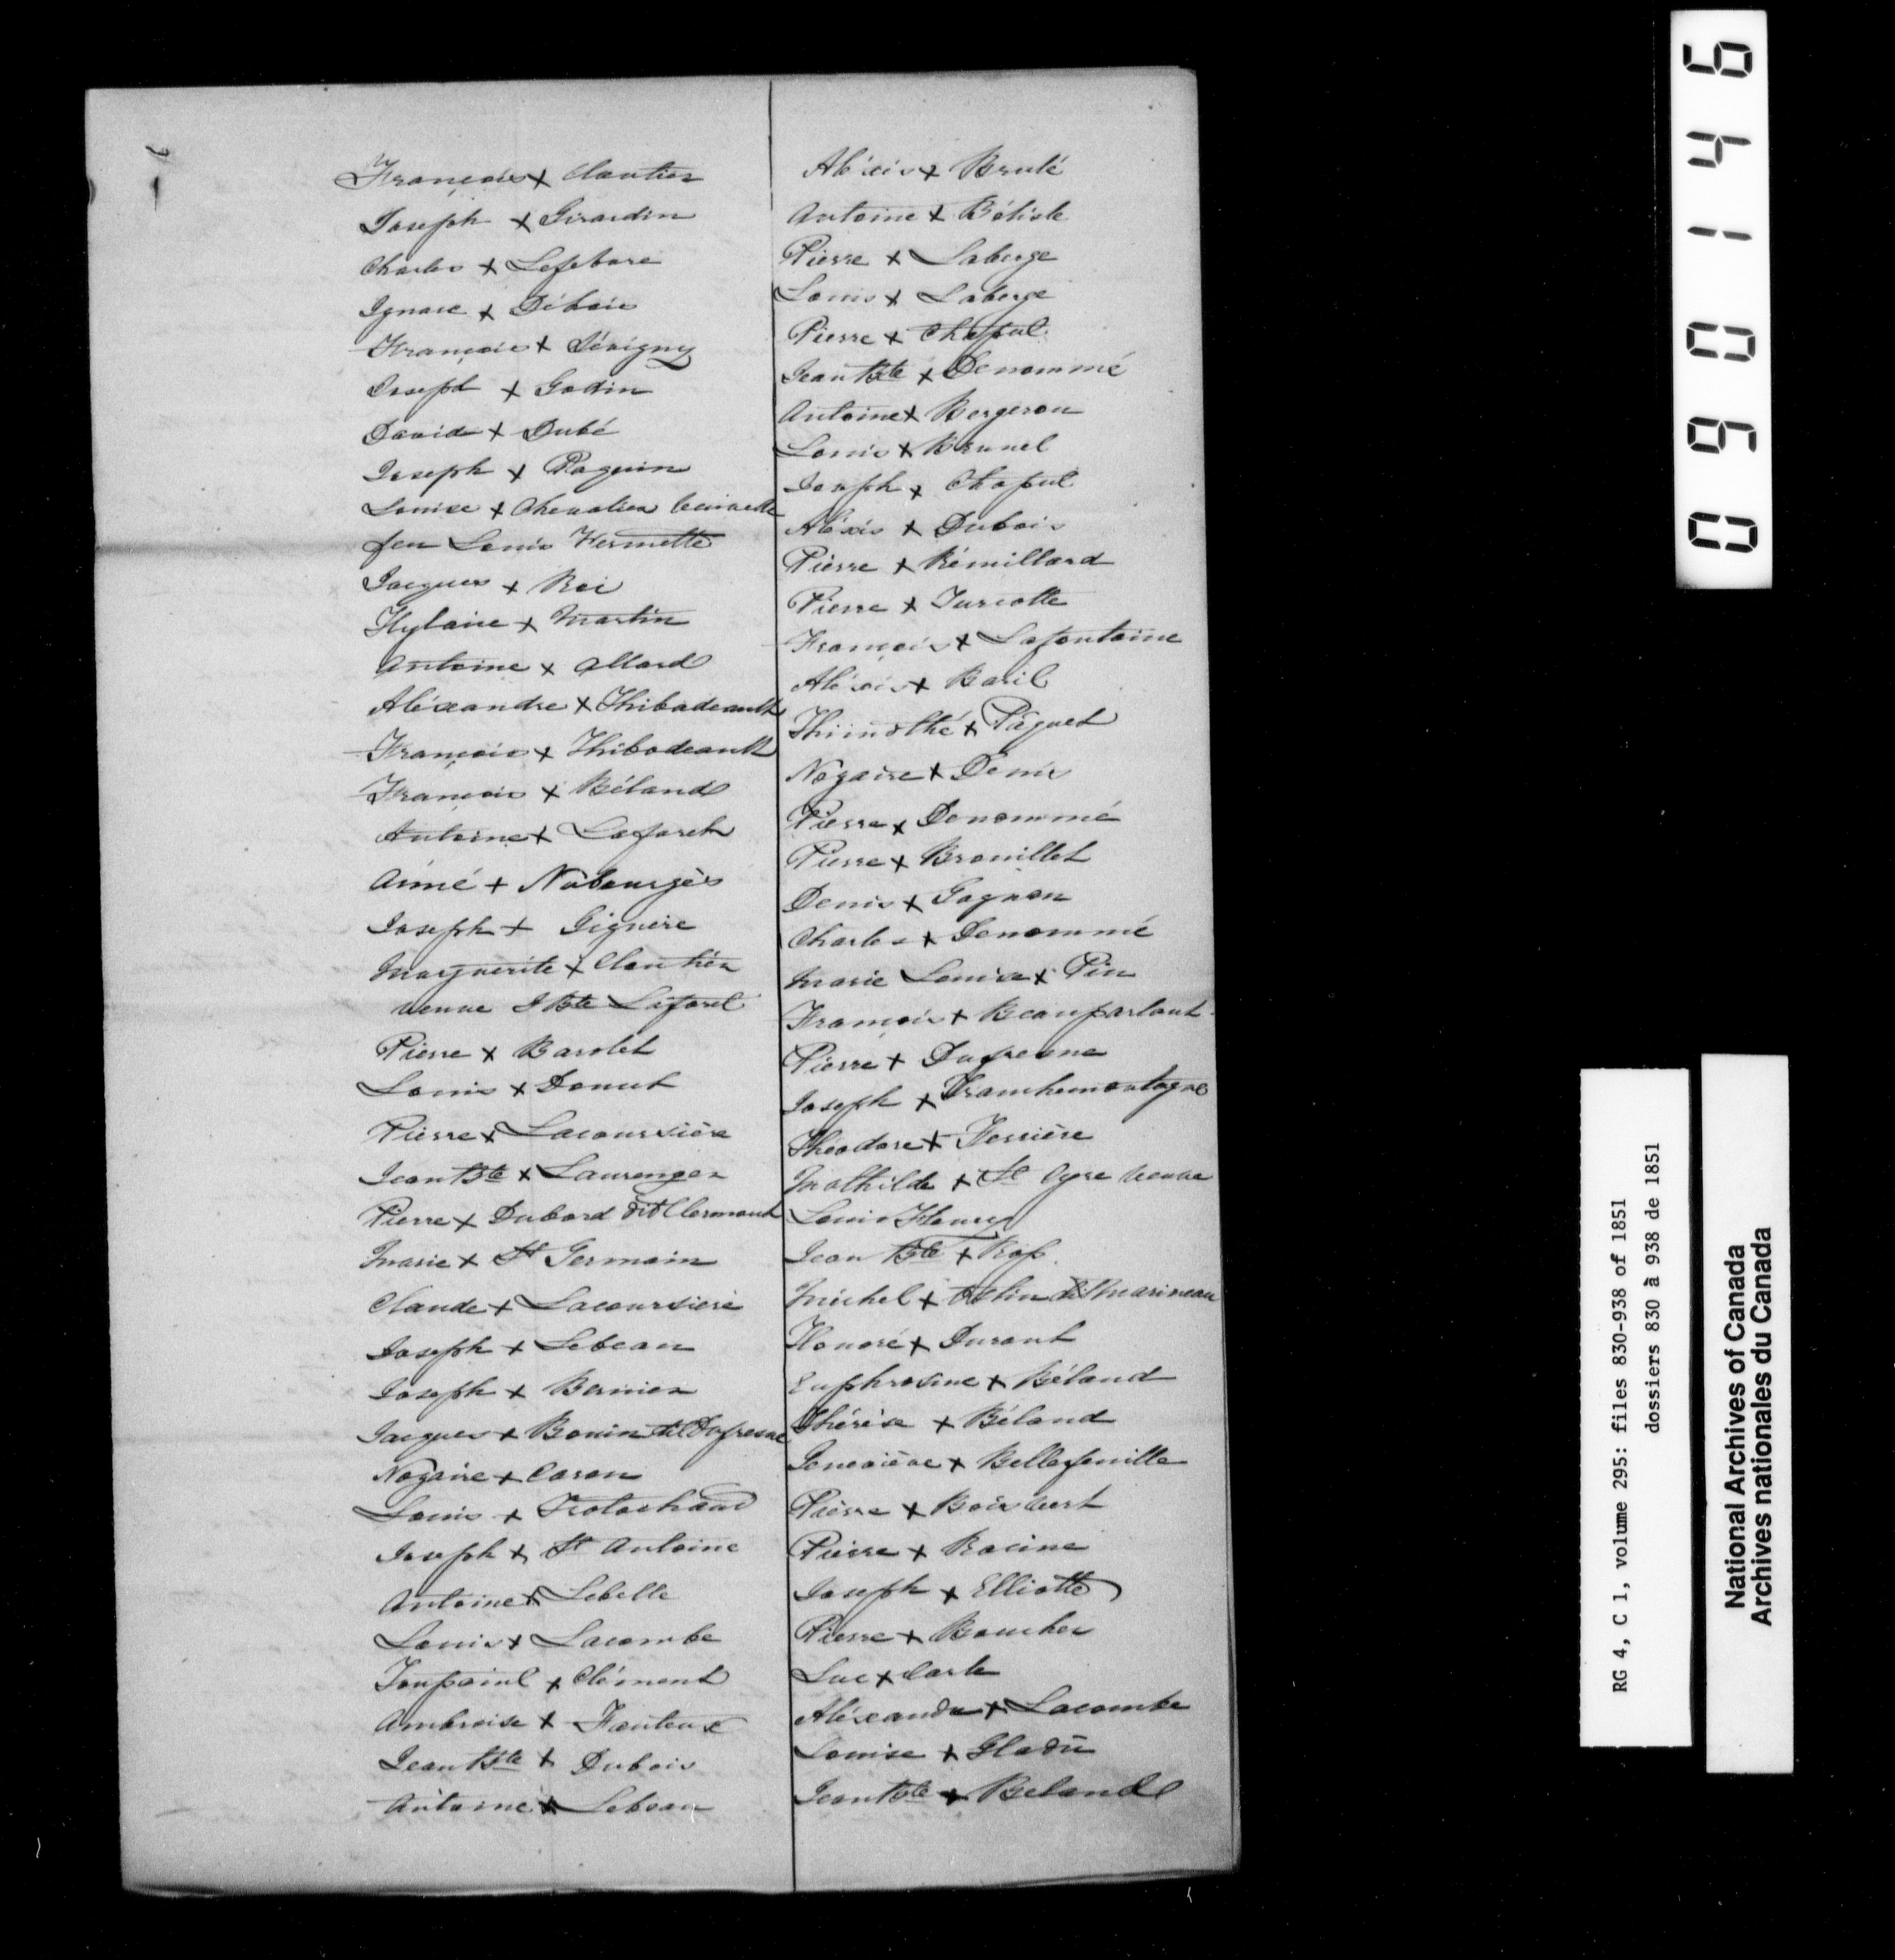 François x Cloutier
Joseph x Girardin
Charles x Lefebvre
Ignace x Débois
François x Sévigny
Joseph x Godin
David x Dubé
Joseph x Paquin
Louise x Chevalier veuve de
feu Louis Hermette
Jacques x Roi
Hylaire x Martin
Antoine x Allard
Aléxandre x Thibadeault
François x Thibodeault
François x Béland
Antoine x Laforet
Aimé x
Joseph x Giguère
Marguerite x Cloutier
veuve J Bte Laforet
Pierre x Barolet
Louis x
Pierre x Lacoursière
Jean Bte x
Pierre x Dubord dit Clermont
Marie x St Germain
Claude x Lacoursière
Joseph x Lebeau
Joseph x Bernier
Jacques x Bonin dit Dufresne
Nazaire x Caron
Louis x
Joseph x St Antoine
Antoine x Lebelle
Louis x Lacombe
Toupaint x Clément
Ambroise x Fauteux
Jean Bte x Dubois
Antoine x Lebeau
Aléxis x Brulé
Antoine x Bélisle
Pierre x Laberge
Louis x Laberge
Pierre x Chaput
Jean Bte x Denommé
Antoine x Bergeron
Louis x Brunel
Joseph x Chaput
Aléxis x Dubois
Pierre x Rémillard
Pierre x Turcotte
François x Lafontaine
Aléxis x Baril
Thimothé x Pâquet
Nazaire x Denis
Pierre x Denommé
Pierre x Brouillet
Denis x Gagnon
Charles x Denommé
Marie Louise x Pin
François x Beauparlant
Pierre x Dufresne
Joseph x Tranchemontagne
Théodore x Ferrière
Mathilde x St Cyre veuve
Louis Fleury
Jean Bte x
Michel x dit Marineau
Honoré x Durant
Euphrosine x Béland
Thérèse x Béland
Geneviève x Bellefeuille
Pierre x Boisvert
Pierre x Racine
Joseph x Elliotte
Pierre x Boucher
Luc x
Aléxandre x Lacombe
Louise x Gladu
Jean Bte x Beland
090146
RG 4, C 1, volume 295: files 830-938 of 1851
dossiers 830 à 938 de 1851
National Archives of Canada
Archives nationales du Canada